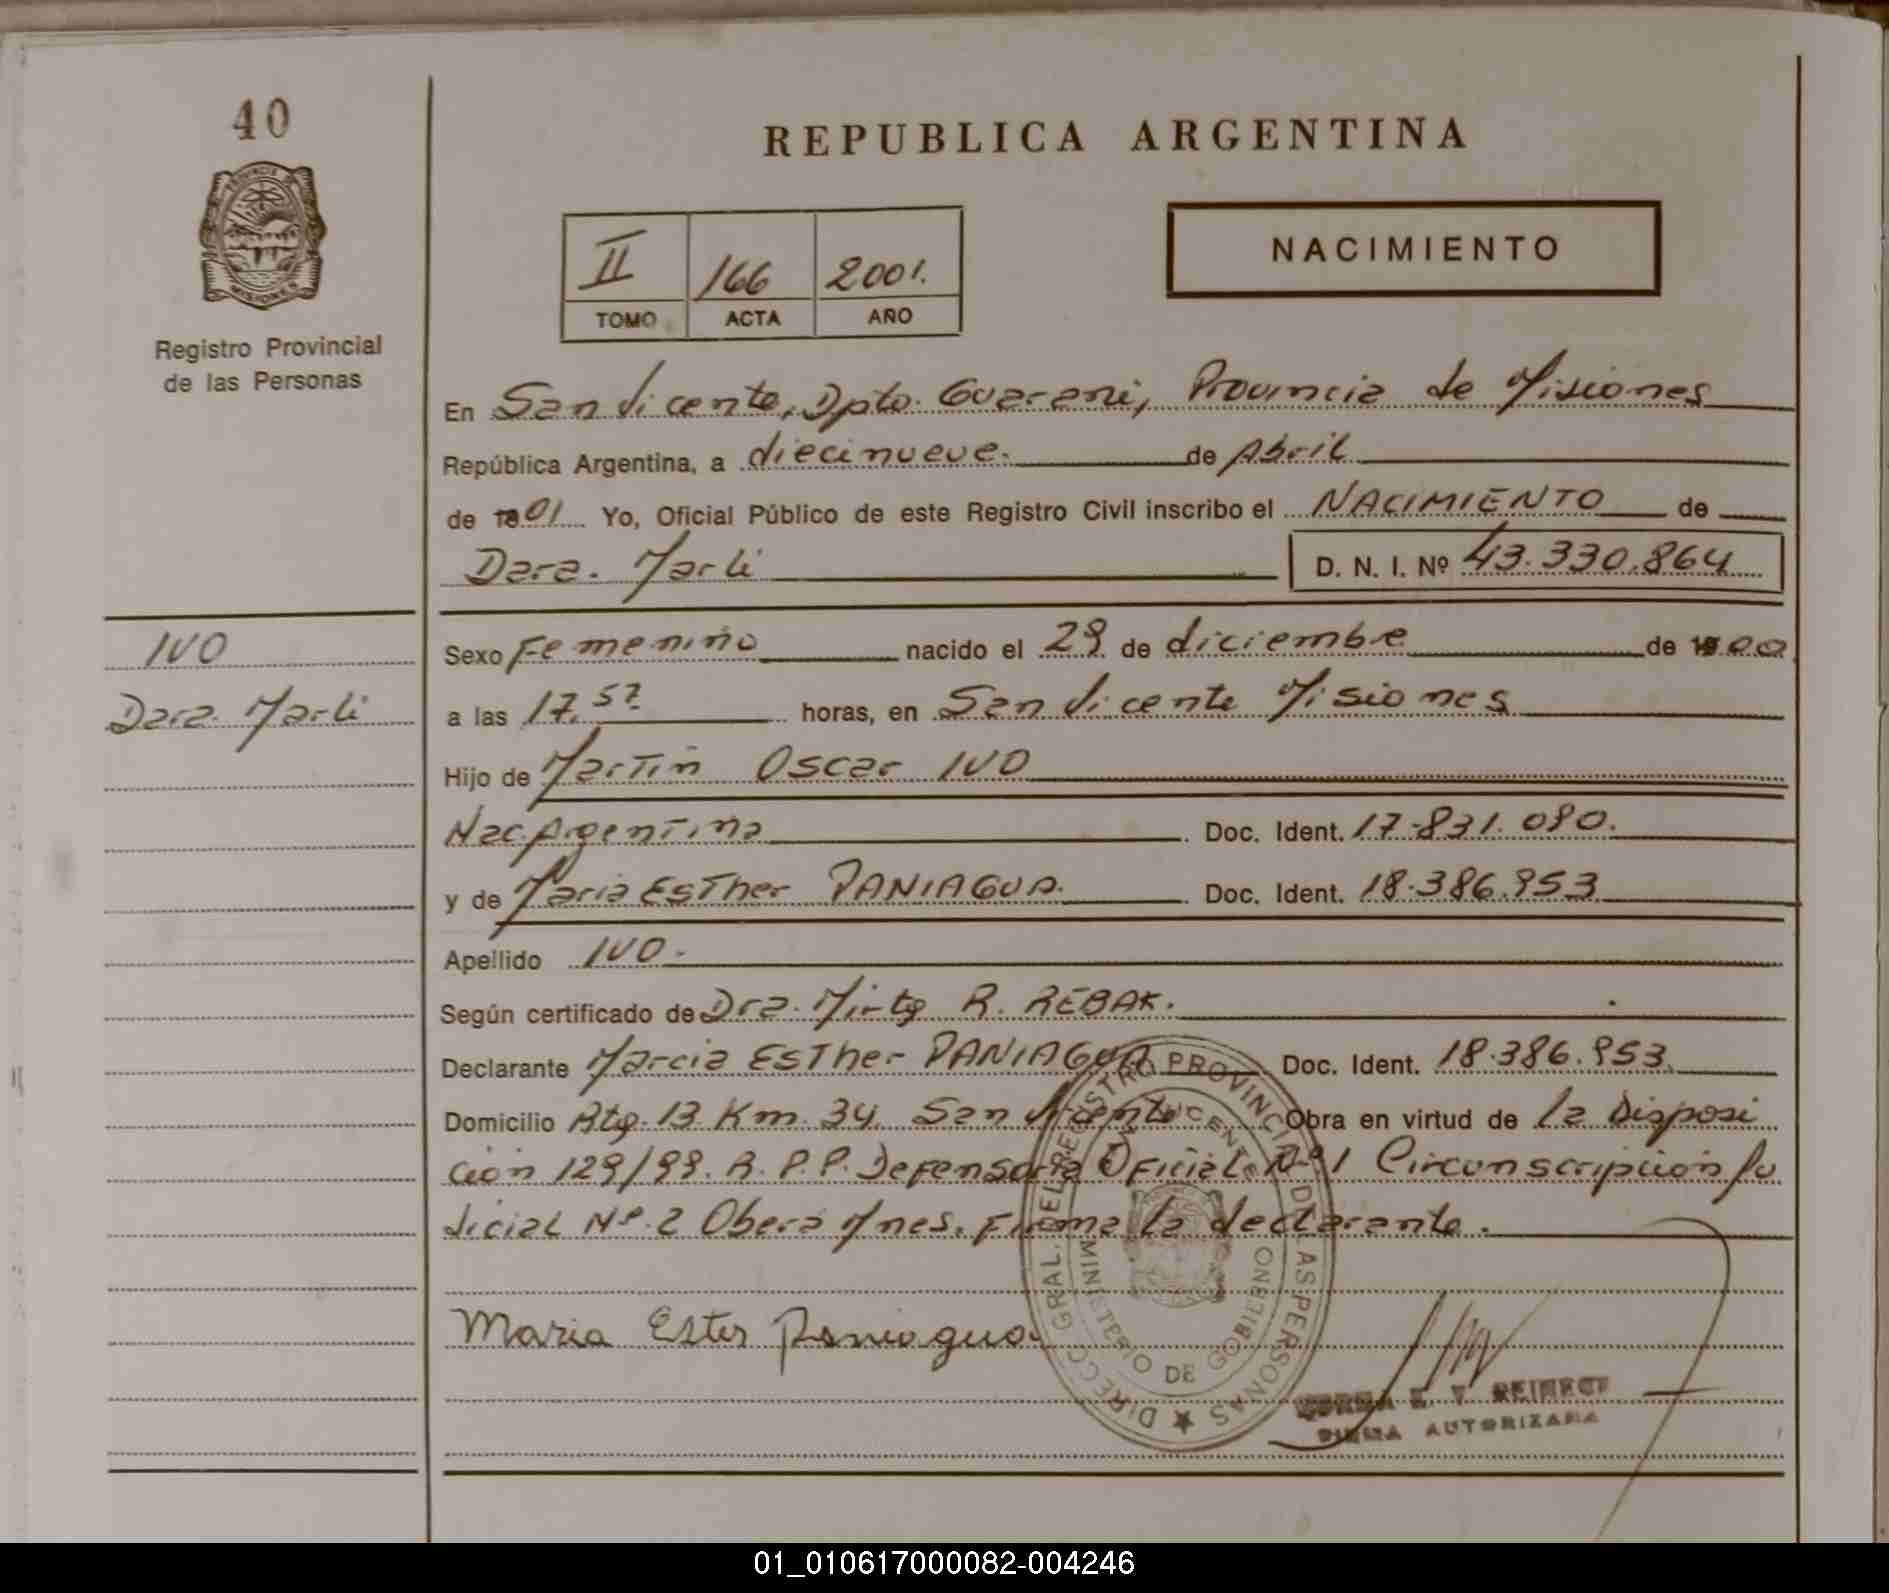 40
REPUBLICA ARGENTINA
PROVINCIA DE
MISIONES
Registro Provincial
de las Personas
II 166 2001.
TOMO ACTA AÑO
NACIMIENTO
En San Vicente, Dpto. Guarani, Provincia de Misiones
República Argentina, a diecinueve. de Abril
de 01 Yo, Oficial Público de este Registro Civil inscribo el NACIMIENTO de
Dara. Marli D. N. I. Nº 43.330.864
IVO
Dara. Marli
Sexo Femenino nacido el 29 de diciembre de 00
a las 17.57. horas, en San Vicente Misiones
Hijo de Martin Oscar IVO
Nac. Argentina Doc. Ident. 17.831.090.
y de Maria Esther PANIAGUA. Doc. Ident. 18.386.953
Apellido IVO.
Según certificado de Dra. Mirta R. REBAK.
Declarante Marcia Esther PANIAGUA Doc. Ident. 18.386.953
Domicilio Rta. 13 Km. 34. San Vicente Obra en virtud de la Disposi
ción 129/99. R. P. P. Defensoria Oficial Nº 1 Circunscripción Ju
dicial Nº 2 Obera Mnes. Firma la declarante.
Maria Ester Paniagua
DIRECC. GRAL. DEL REGISTRO PROVINCIAL DE LAS PERSONAS
MINISTERIO DE GOBIERNO
AUTORIZADA
01_010617000082-004246